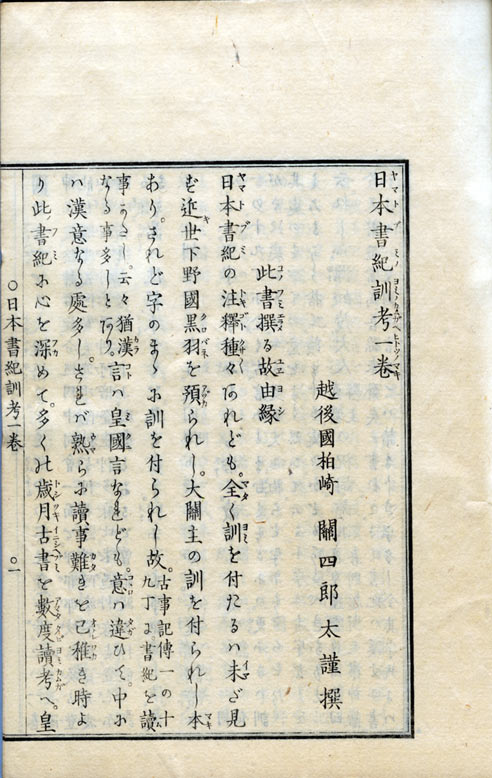 日本書紀訓考一卷
越後國柏崎 關四郎太謹撰
此書撰る故由縁
日本書紀の注釋種々あれども。全く訓を付たるハ未ざ見
ず近世下野國黒羽を預られし。大關主の訓を付られし本
あり。されど字のまゝに訓を付られし故。古事記傳一の十九丁に書紀を讀
事かたし。云々猶漢言ハ皇國言なれども。意ハ違ひて中に
なる事多しとあり。
ハ漢意なる處多し。されバ熟らに讀事難きを己稚き時よ
り此書紀に心を深めて。多くの歳月古書を數度讀考へ。皇
○日本書紀訓考一卷 ○一